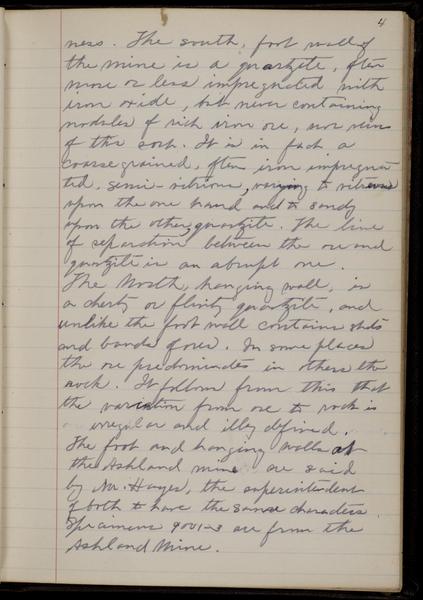 4
ness. The south, foot wall of
the mine is a quartzite, often
more or less impregnated with
iron oxide, but never containing
nodules of rich iron ore, nor veins
of the sort. It is in fact a
coarse grained, often iron impregna
ted, semi-vitrious, varying to vitreous
upon the one hand and to sandy
upon the other, quartzite. The line
of separation between the ore and
quartzite is an abrupt one.
The North, hanging wall, is
a cherty or flinty quartzite, and
unlike the foot wall contains
and bands of ore. In some places
the ore predominates in others the
rock. It follows from this that
the variation from ore to rock is
irregular and illy defined.
The foot and hanging walls at
the Ashland mine are said
by Mr. Hayes, the superintendent
of both to have the same characters.
Specimens 9001-3 are from the
Ashland Mine.